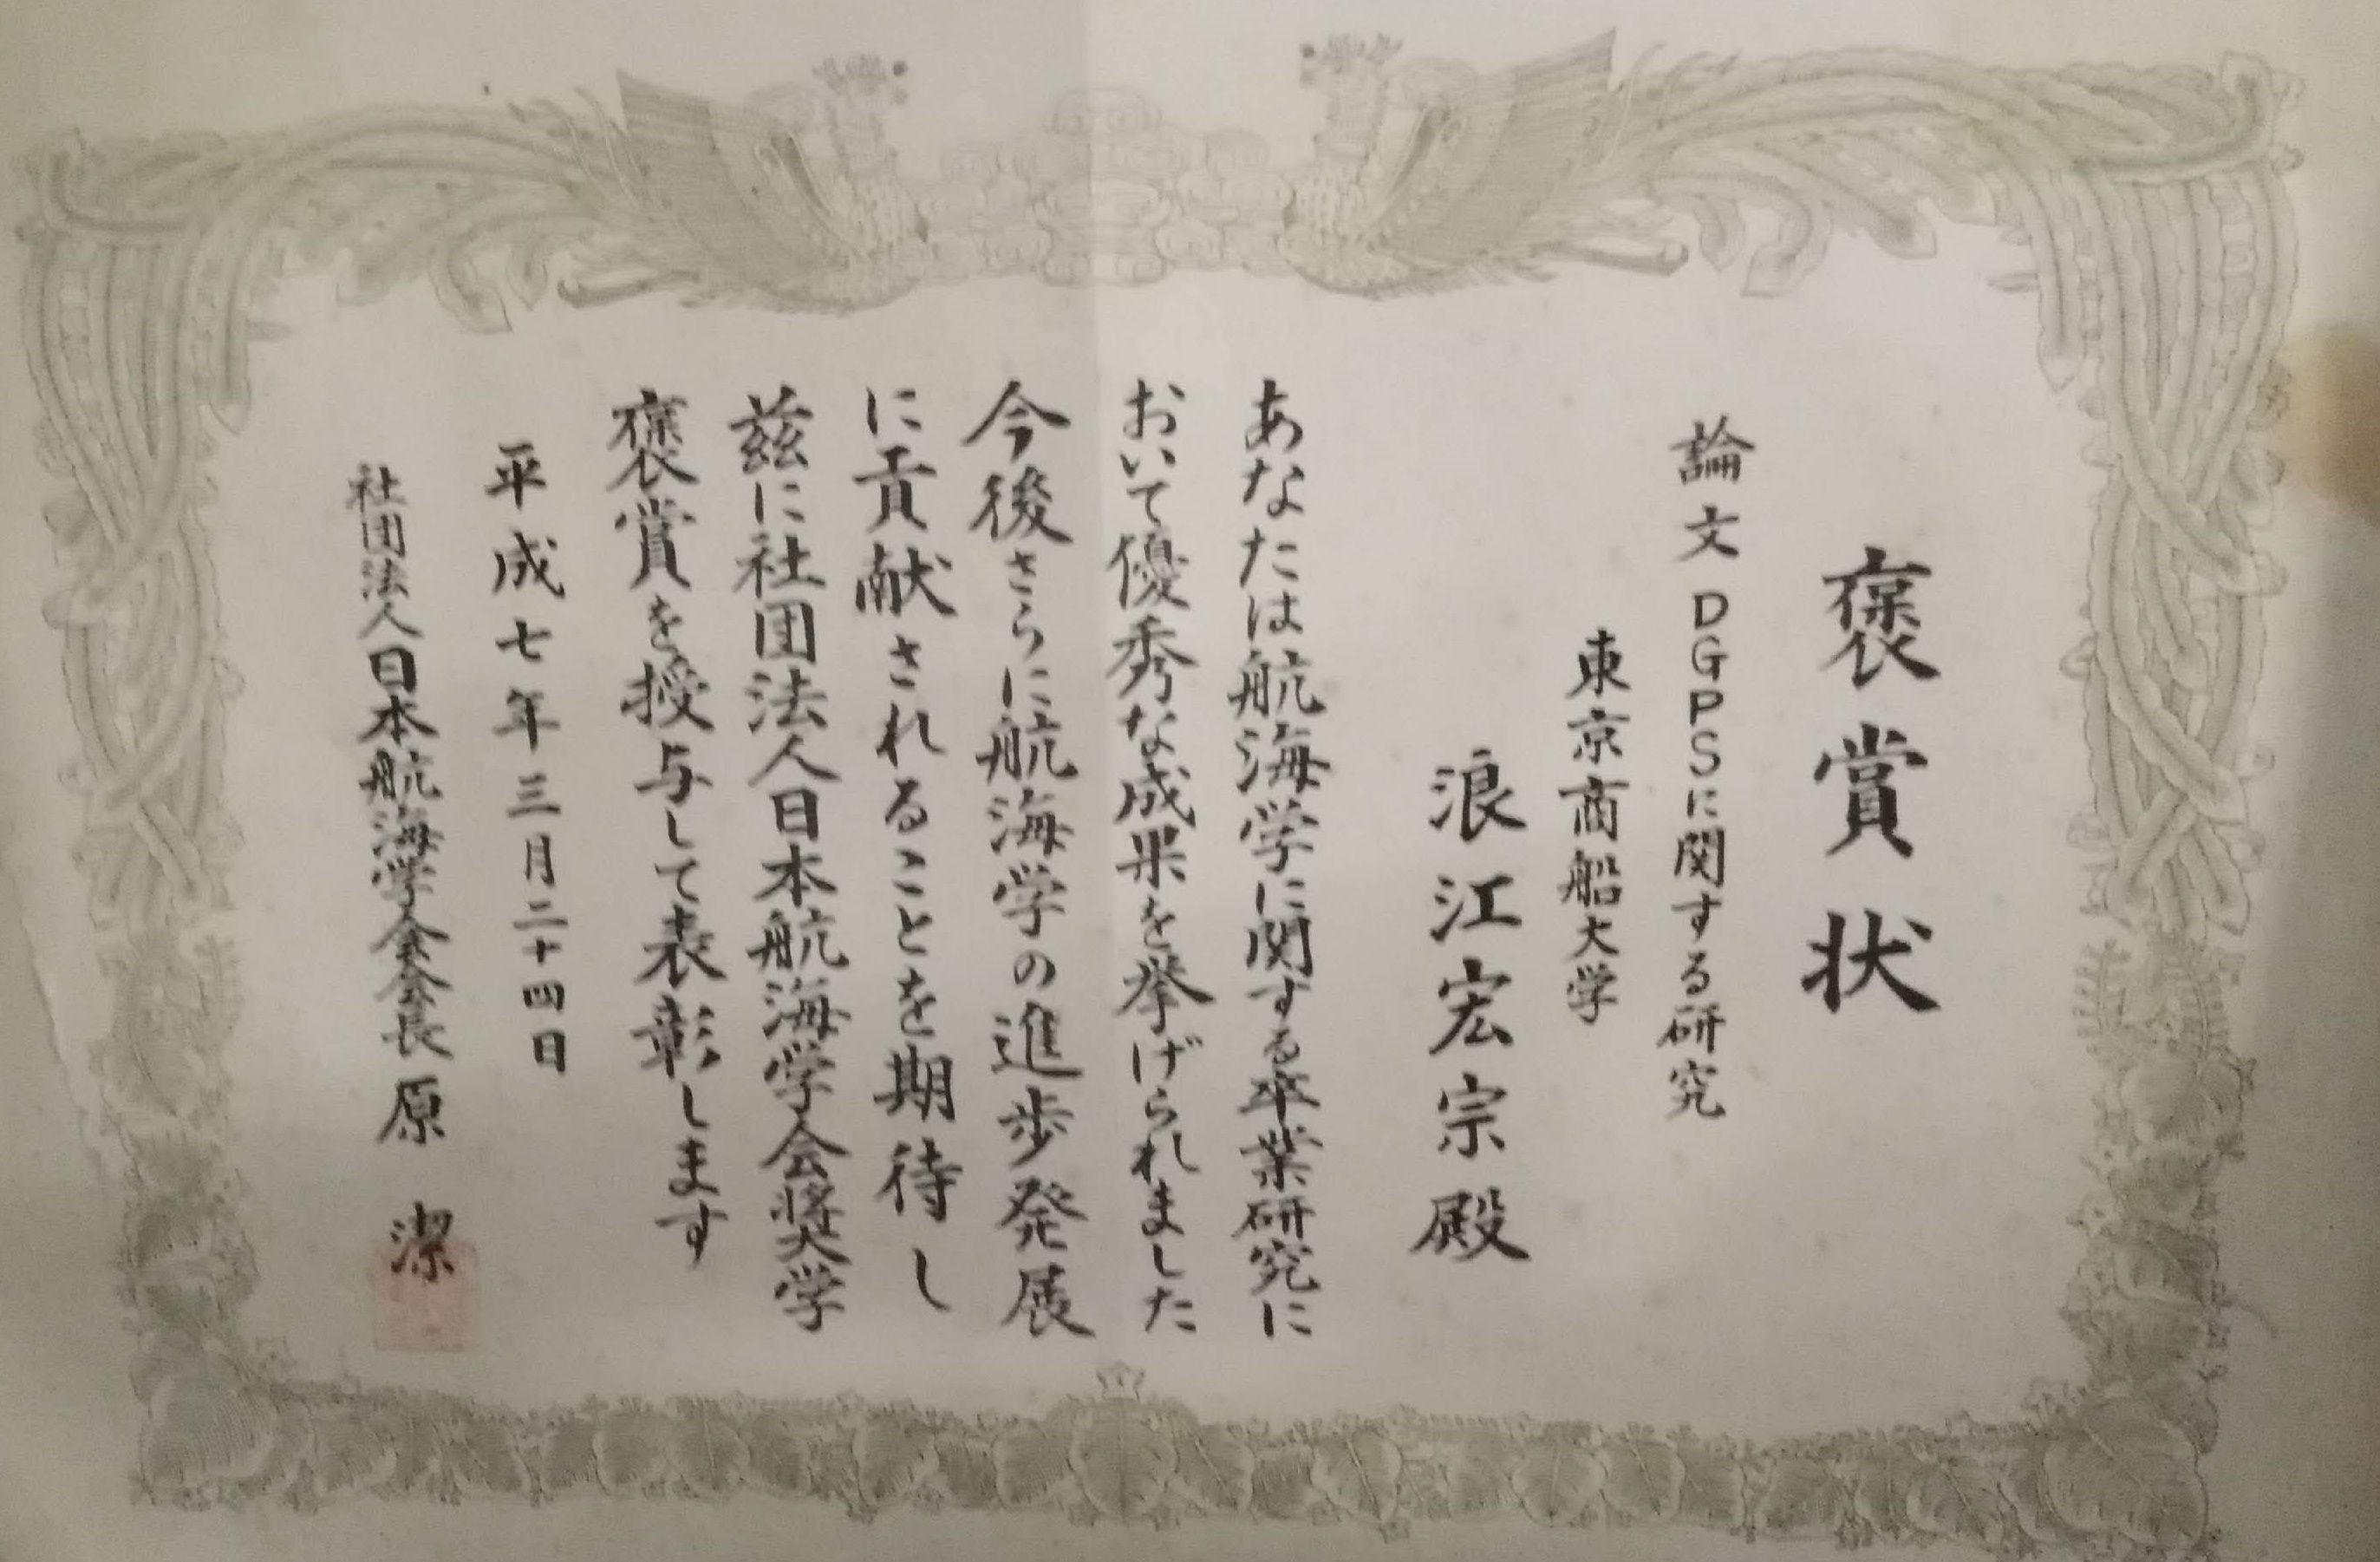 褒賞状
論文 DGPSに関する研究
東京商船大学
浪江宏宗殿
あなたは航海学に関する卒業研究に
おいて優秀な成果を挙げられました
今後さらに航海学の進歩発展
に貢献されることを期待し
茲に社団法人日本航海学会奨学
褒賞を授与して表彰します
平成七年三月二十四日
社団法人日本航海学会会長 原 潔